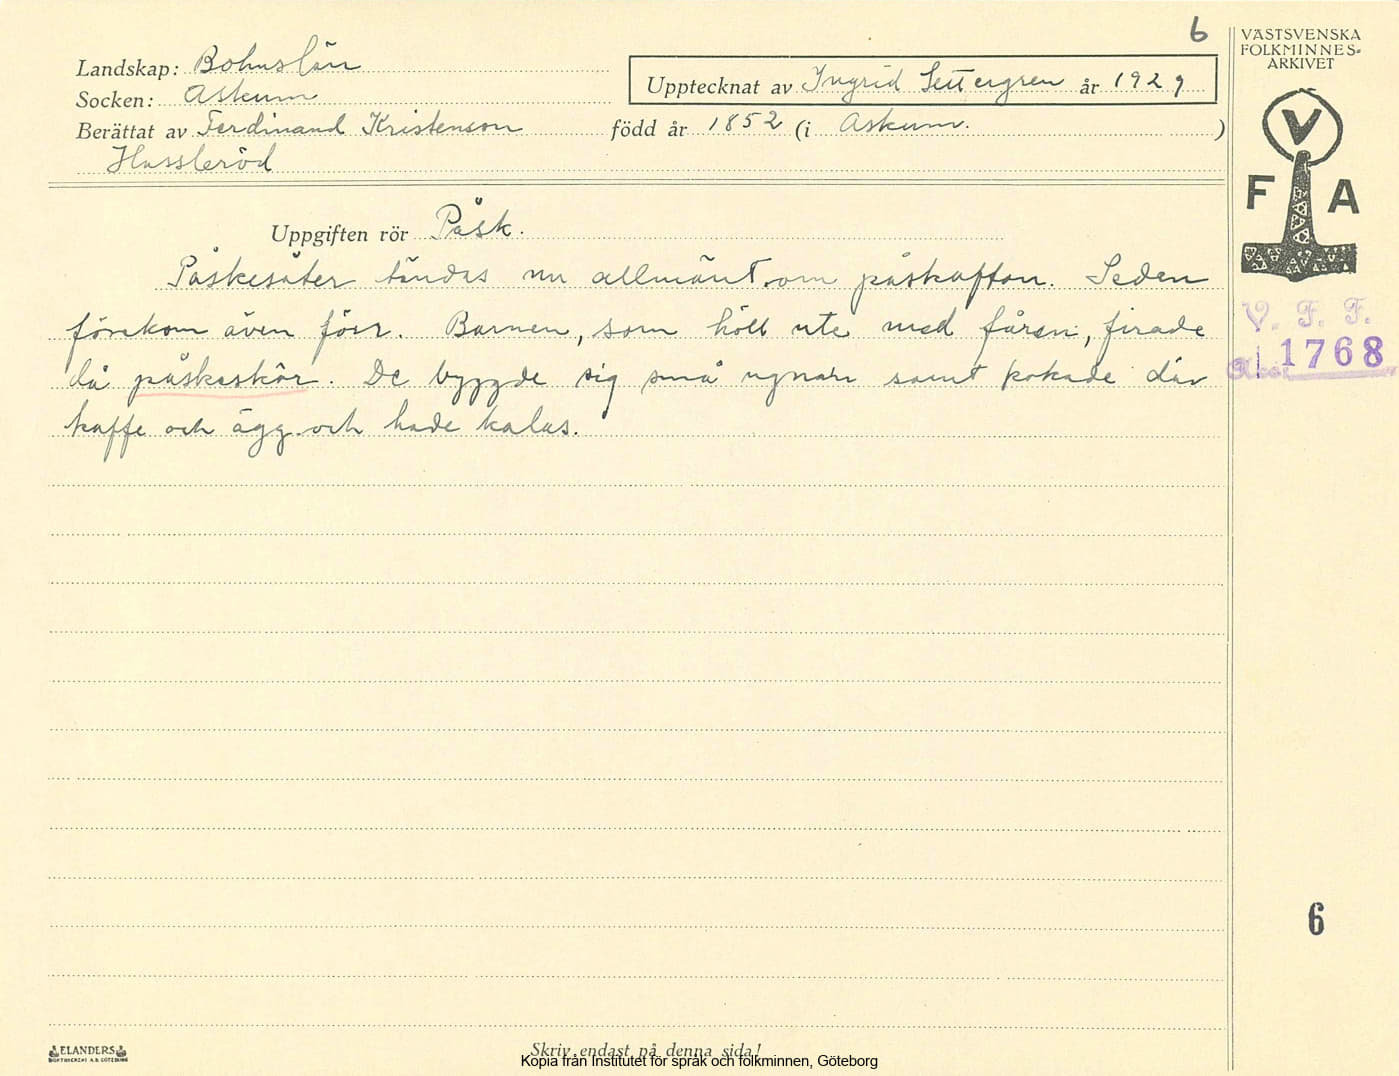 6
VÄSTSVENSKA
FOLKMINNES-
ARKIVET
Landskap: Bohuslän
Upptecknat av Ingrid Settergren år 1929
Socken: Askum
Berättat av Ferdinand Kristenson född år 1852 (i Askum. )
Hassleröd
V
F A
Uppgiften rör Påsk.
Påskesåter tändas nu allmänt om påskafton. Seden
förekom även förr. Barnen, som höll ute med fåren, firade
då påskaskör. De byggde sig små ugnar samt kokade där
kaffe och ägg och hade kalas.
V. F. F.
1768
6
ELANDERS
BOKTRYCKERI A.B. GÖTEBORG
Skriv endast på denna sida!
Kopia från Institutet för språk och folkminnen, Göteborg